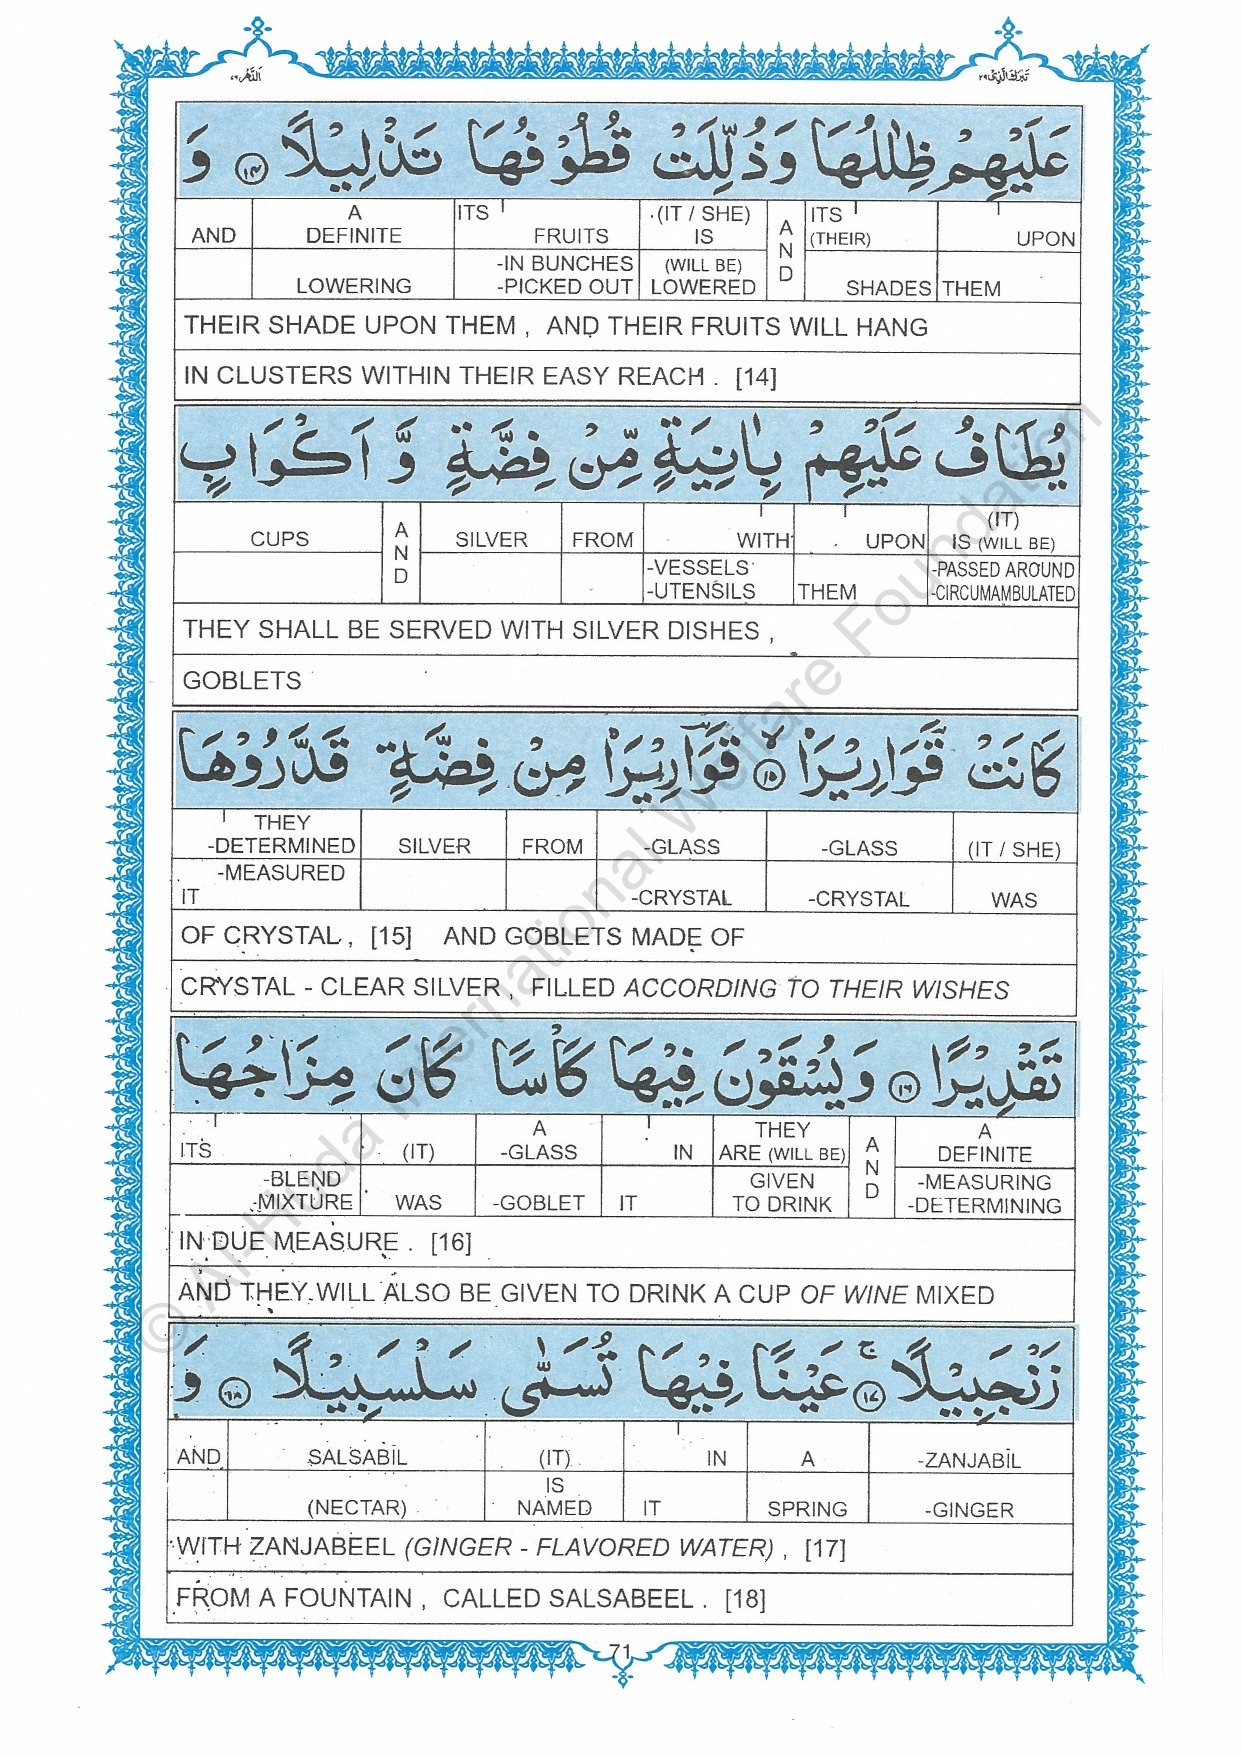 الدَّهْر ٧٦
تَبٰرَكَ الَّذِىْ ٢٩
عَلَيْهِمْ ظِلٰلُهَا وَذُلِّلَتْ قُطُوْفُهَا تَذْلِيْلًا ١٤ وَ
AND A DEFINITE ITS FRUITS (IT / SHE) IS AND ITS (THEIR) UPON
LOWERING -IN BUNCHES -PICKED OUT (WILL BE) LOWERED SHADES THEM
THEIR SHADE UPON THEM , AND THEIR FRUITS WILL HANG
IN CLUSTERS WITHIN THEIR EASY REACH . [14]
يُطَافُ عَلَيْهِمْ بِاٰنِيَةٍ مِّنْ فِضَّةٍ وَّ اَكْوَابٍ
CUPS AND SILVER FROM WITH UPON (IT) IS (WILL BE)
-VESSELS -UTENSILS THEM -PASSED AROUND -CIRCUMAMBULATED
THEY SHALL BE SERVED WITH SILVER DISHES ,
GOBLETS
كَانَتْ قَوَارِيْرَا۠ ١٥ قَوَارِيْرَا۠ مِنْ فِضَّةٍ قَدَّرُوْهَا
THEY -DETERMINED SILVER FROM -GLASS -GLASS (IT / SHE)
-MEASURED IT -CRYSTAL -CRYSTAL WAS
OF CRYSTAL , [15] AND GOBLETS MADE OF
CRYSTAL - CLEAR SILVER , FILLED ACCORDING TO THEIR WISHES
تَقْدِيْرًا ١٦ وَيُسْقَوْنَ فِيْهَا كَاْسًا كَانَ مِزَاجُهَا
ITS (IT) A -GLASS IN THEY ARE (WILL BE) AND A DEFINITE
-BLEND -MIXTURE WAS -GOBLET IT GIVEN TO DRINK -MEASURING -DETERMINING
IN DUE MEASURE . [16]
AND THEY WILL ALSO BE GIVEN TO DRINK A CUP OF WINE MIXED
زَنْجَبِيْلًا ١٧ ج عَيْنًا فِيْهَا تُسَمّٰى سَلْسَبِيْلًا ١٨ وَ
AND SALSABĪL (IT) IN A -ZANJABĪL
(NECTAR) IS NAMED IT SPRING -GINGER
WITH ZANJABEEL (GINGER - FLAVORED WATER) , [17]
FROM A FOUNTAIN , CALLED SALSABEEL . [18]
71
© Al-Huda International Welfare Foundation